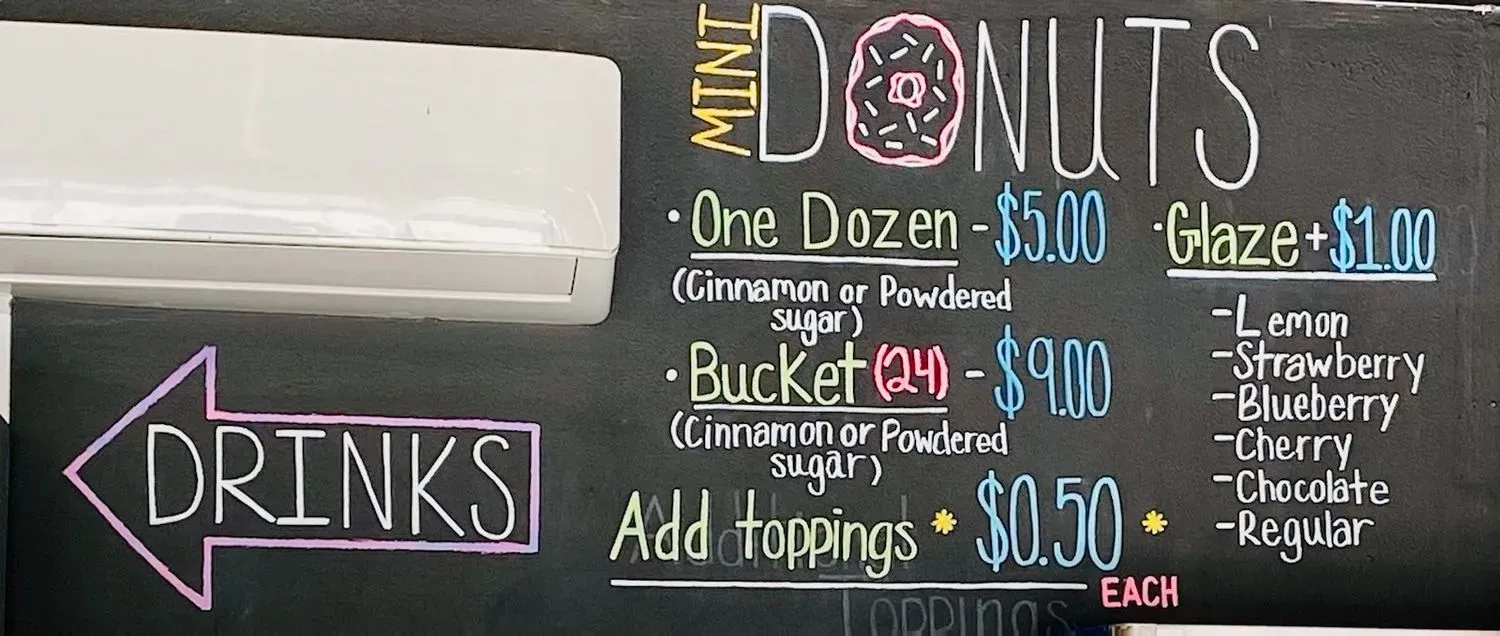 MINI DONUTS
· One Dozen - $5.00
(Cinnamon or Powdered
sugar)
· Bucket (24) - $9.00
(Cinnamon or Powdered
sugar)
Add toppings * $0.50 *
EACH
· Glaze + $1.00
- Lemon
- Strawberry
- Blueberry
- Cherry
- Chocolate
- Regular
DRINKS
Toppings